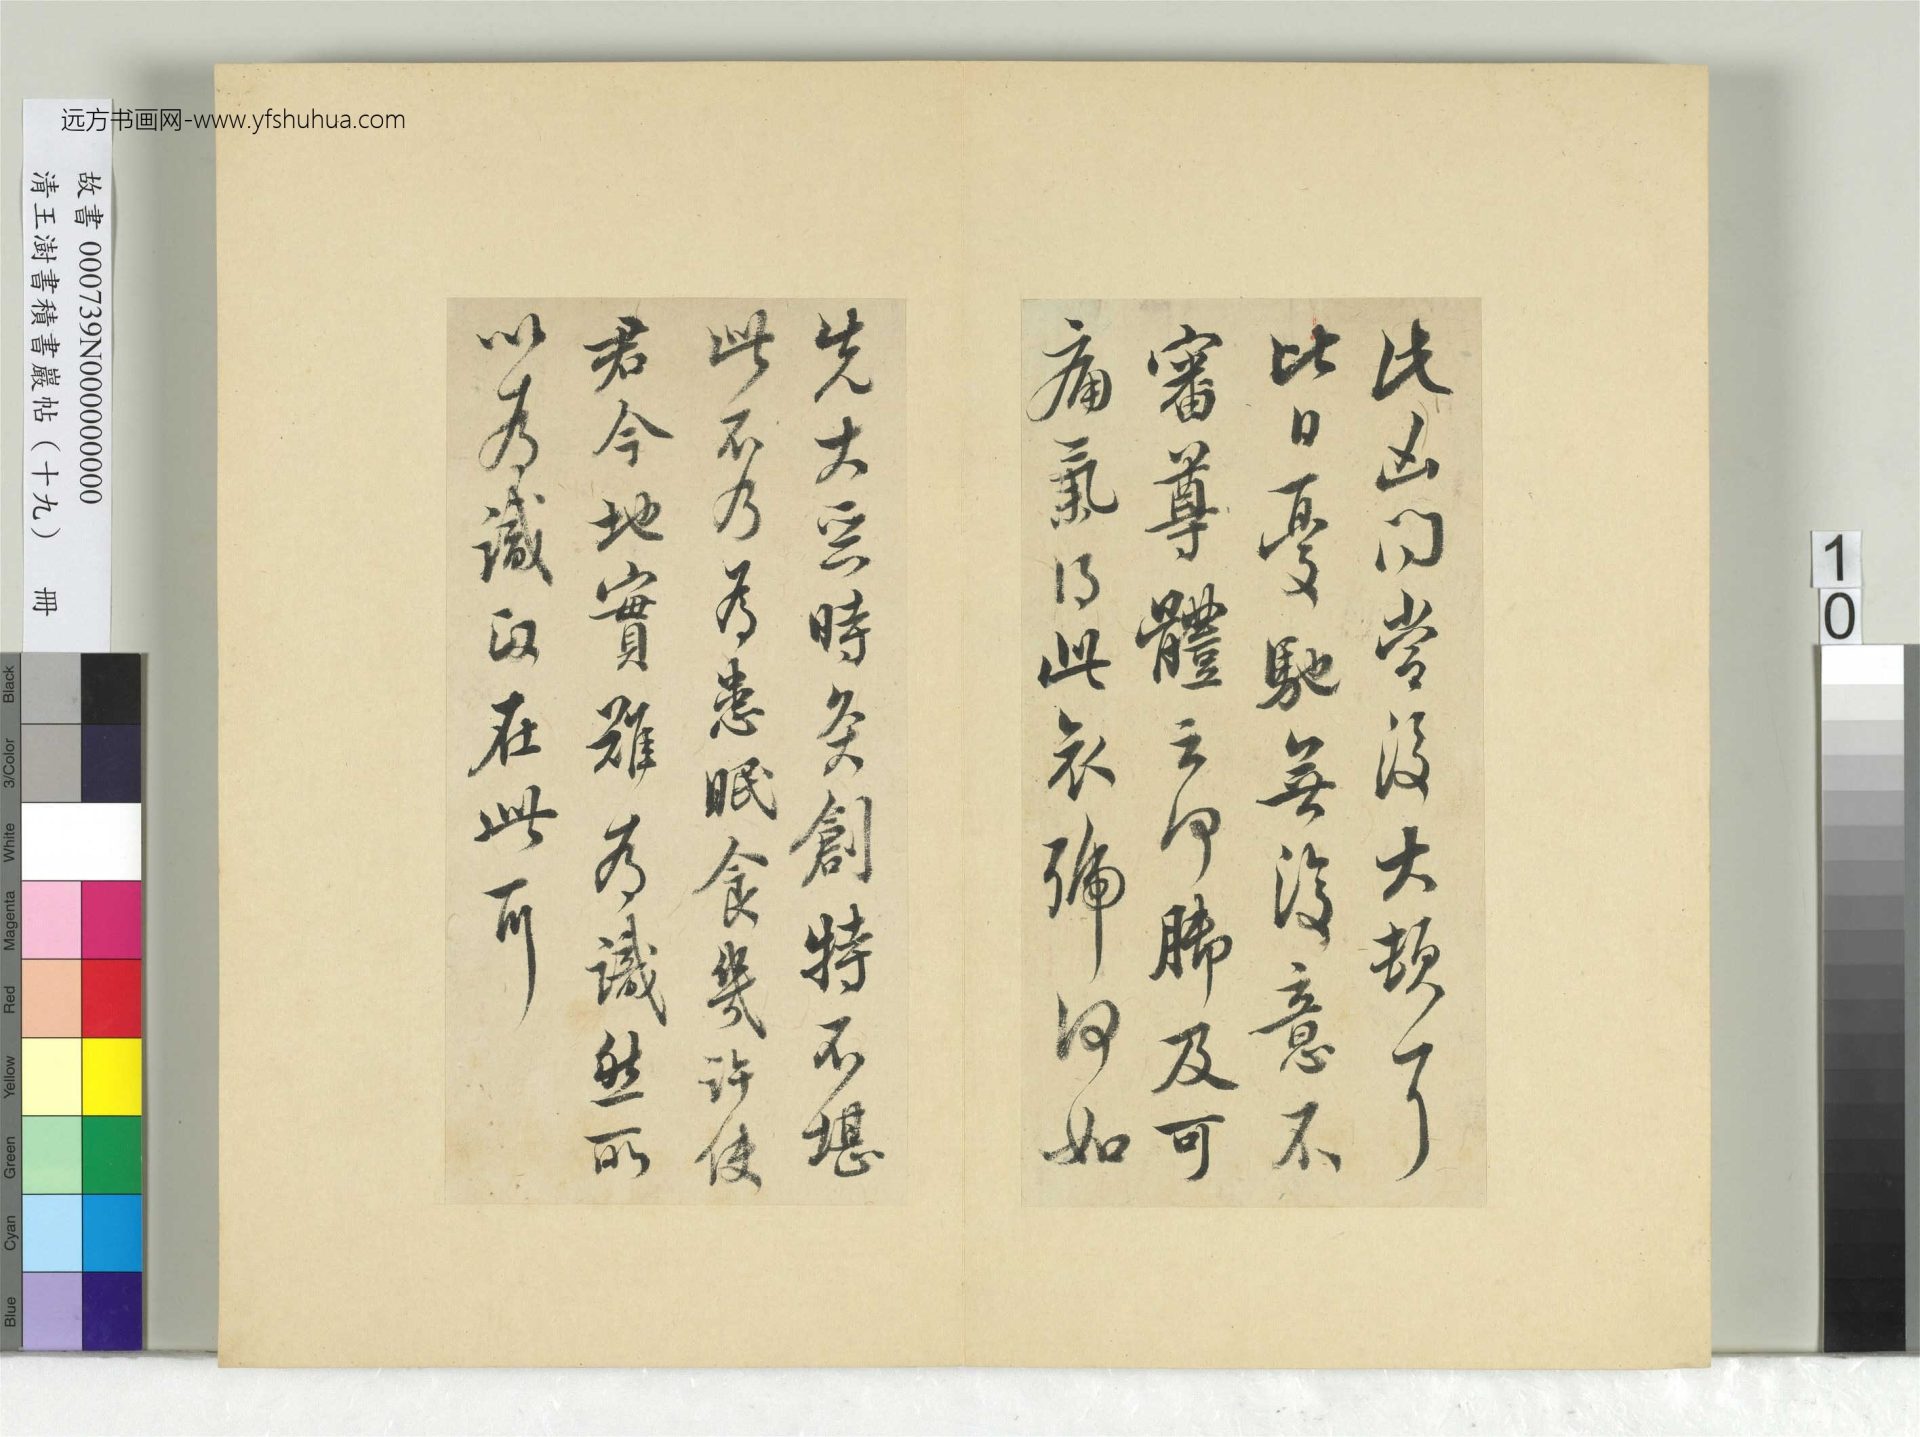 凶問當復大頓耳
比日憂馳無復意不
審尊體云何及可
痛氣得此衣號何如
先大惡時灸創特不堪
此不乃為患眠食幾許使
君今地實難為識然所
以為識正在此耳
远方书画网-www.yfshuhua.com
故書 000739N000000000
清王澍書積書巖帖（十九） 冊
Black
3/Color
White
Magenta
Red
Yellow
Green
Cyan
Blue
10